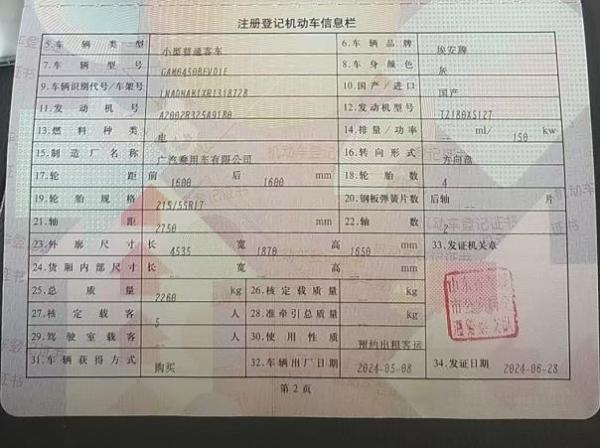 注册登记机动车信息栏
5.车辆类型 小型普通客车 6.车辆品牌 埃安牌
7.车辆型号 GAM6450BEVD1E 8.车身颜色 灰
9.车辆识别代号/车架号 10.国产/进口 国产
11.发动机号 A2002R325A9180 12.发动机型号 TZ180XS127
13.燃料种类 电 14.排量/功率 -- ml/ 150 kw
15.制造厂名称 广汽乘用车有限公司 16.转向形式 方向盘
17.轮距 前 1600 后 1600 mm 18.轮胎数 4
19.轮胎规格 215/55R17 20.钢板弹簧片数 后轴 -- 片
21.轴距 2750 mm 22.轴数 2
23.外廓尺寸 长 4535 宽 1870 高 1650 mm 33.发证机关章
24.货厢内部尺寸 长 -- 宽 -- 高 -- mm
25.总质量 2260 kg 26.核定载质量 -- kg
27.核定载客 5 人 28.准牵引总质量 -- kg
29.驾驶室载客 -- 人 30.使用性质 预约出租客运
31.车辆获得方式 购买 32.车辆出厂日期 2024-05-08 34.发证日期 2024-06-28
第2页